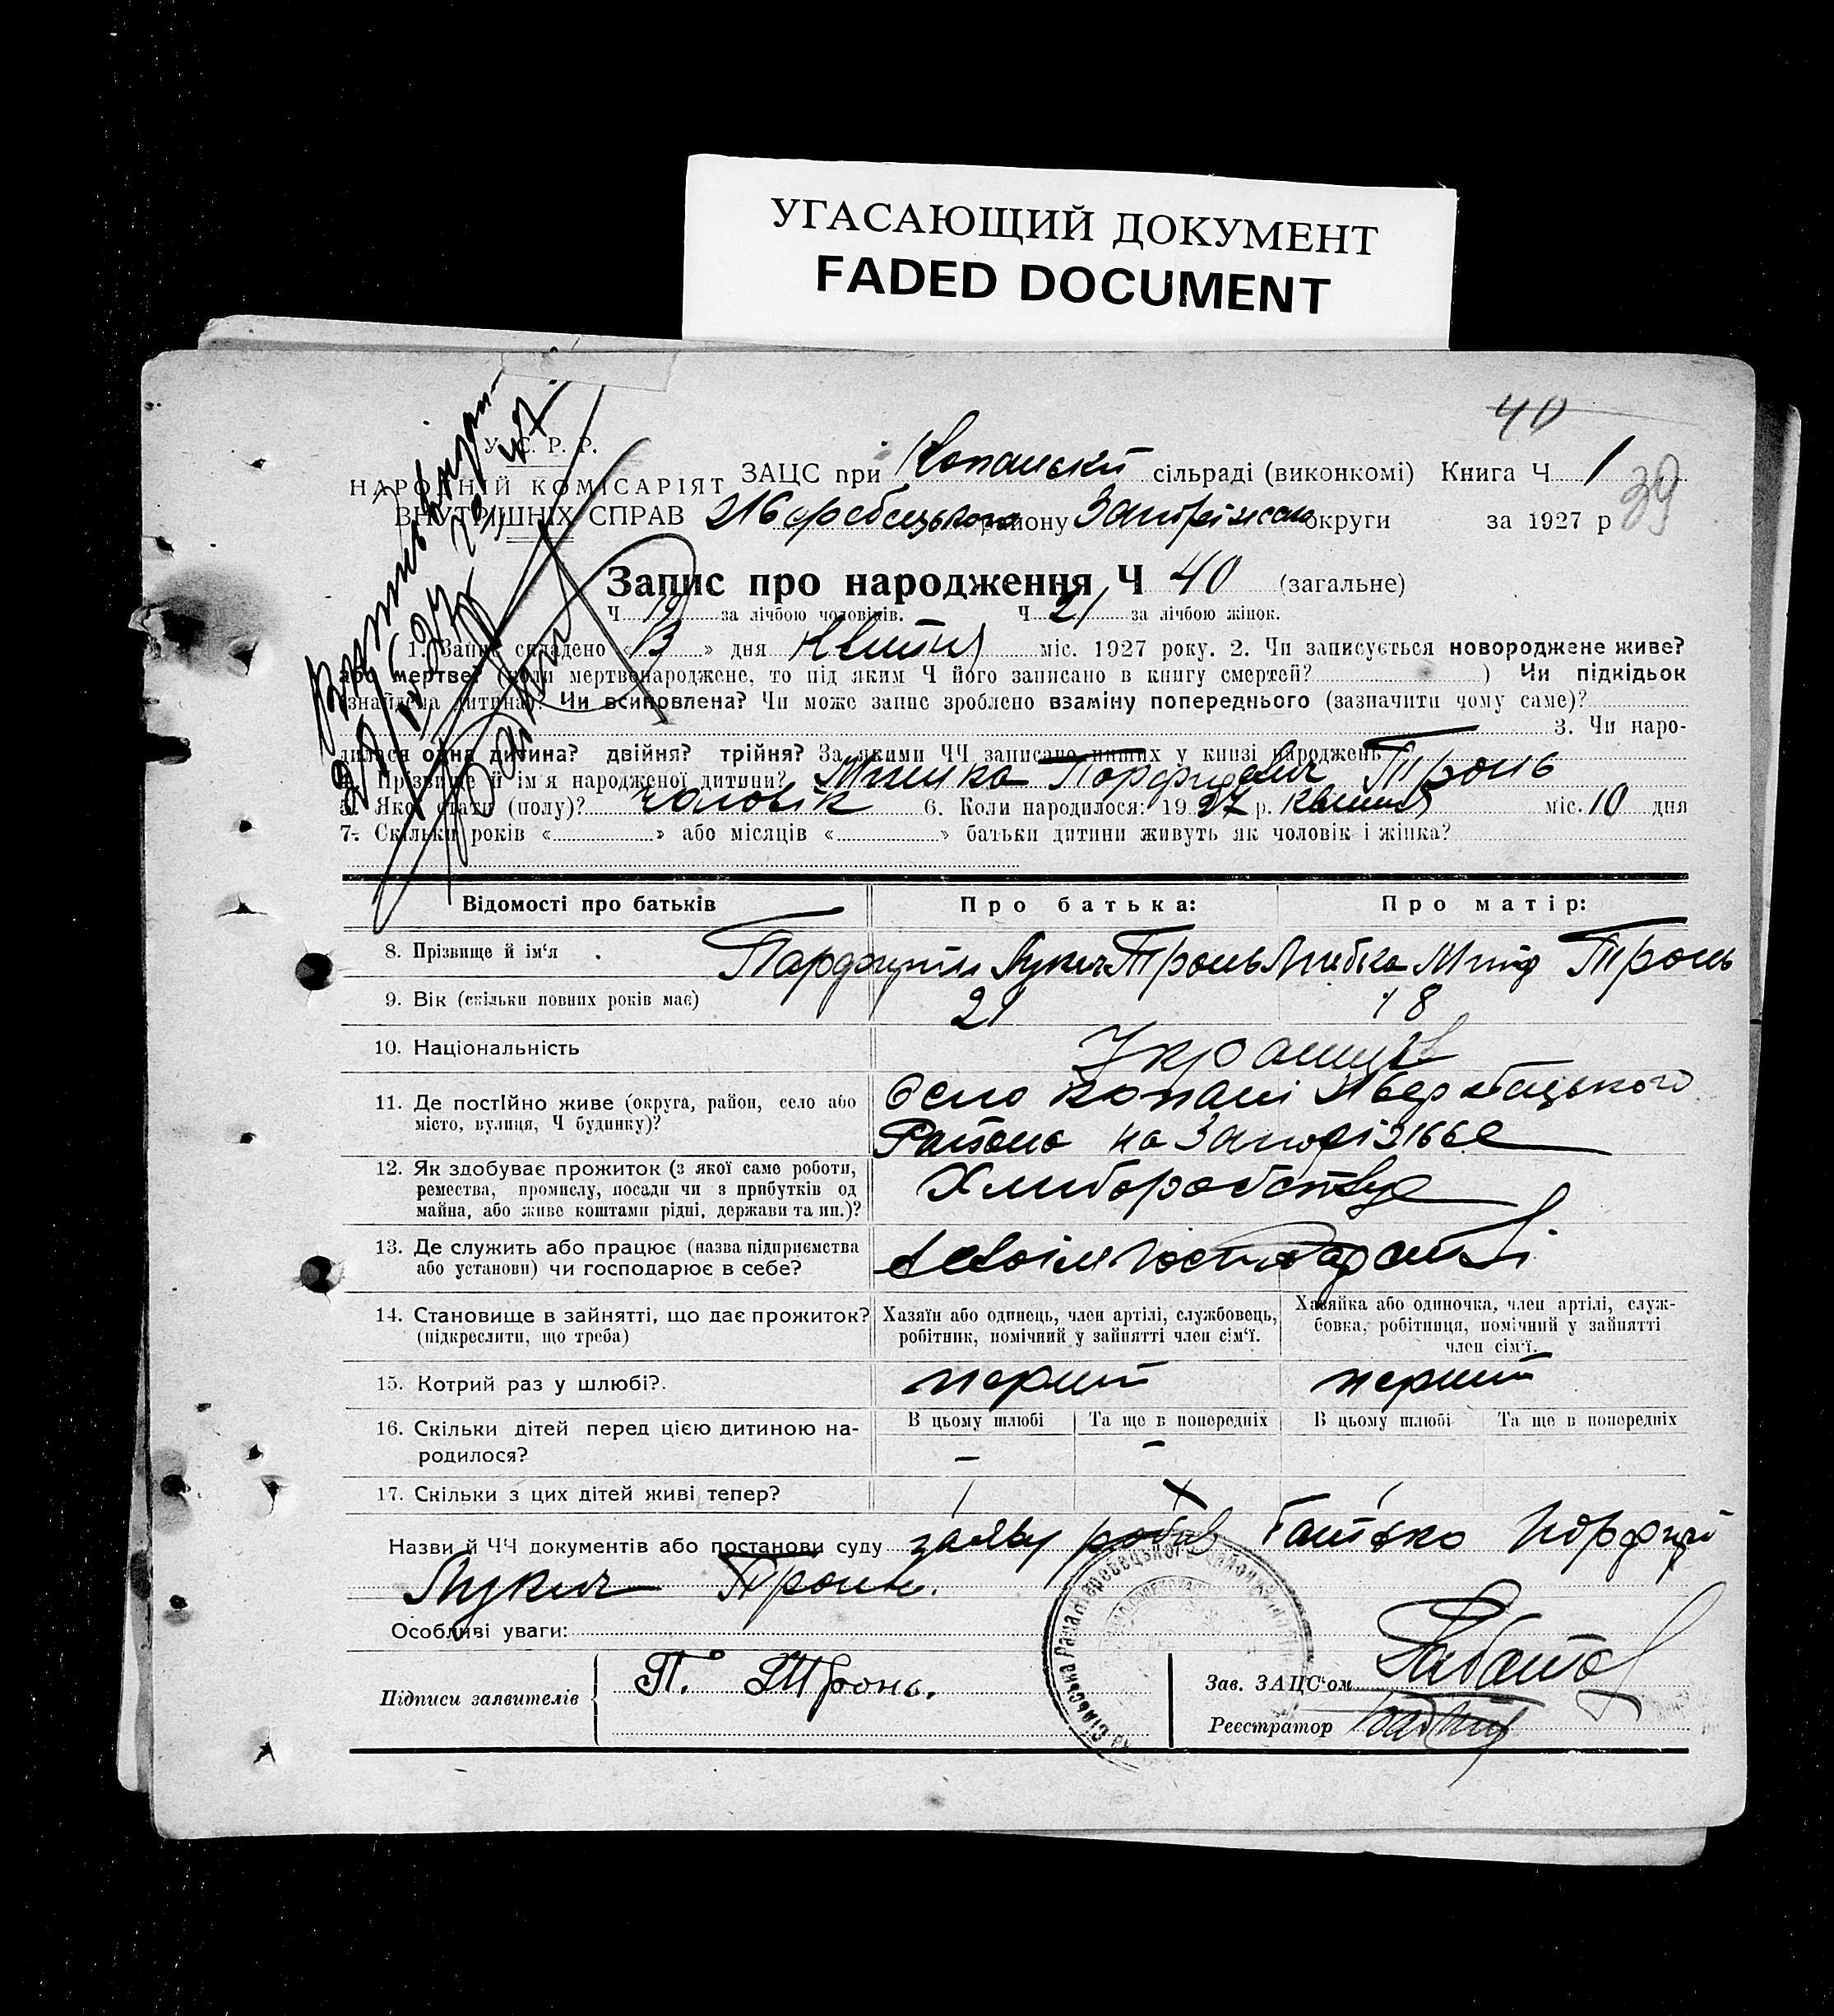 УГАСАЮЩИЙ ДОКУМЕНТ
FADED DOCUMENT
40
У. С. Р. Р.
НАРОДНІЙ КОМІСАРІЯТ
ВНУТРІШНІХ СПРАВ
ЗАЦС при Копанській сільраді (виконкомі) Книга Ч 1
району округи за 1927 р
39
Запис про народження Ч 40 (загальне)
Ч 19 за лічбою чоловіків. Ч 21 за лічбою жінок.
1. Запис складено « 13 » дня Квітня міс. 1927 року. 2. Чи записується новороджене живе?
або мертве? (коли мертвонароджене, то під яким Ч його записано в книгу смертей? ) Чи підкідьок
(знайдена дитина)? Чи всиновлена? Чи може запис зроблено взаміну попереднього (зазначити чому саме)?
3. Чи наро-
дилася одна дитина? двійня? трійня? За якими ЧЧ записано инших у книзі народжень
4. Прізвище й ім'я народженої дитини? Тронь
5. Якої стати (полу)? чоловік 6. Коли народилося: 1927 р. квітня міс. 10 дня
7. Скільки років « » або місяців « » батьки дитини живуть як чоловік і жінка?
Відомості про батьків Про батька: Про матір:
8. Прізвище й ім'я Лукич Тронь Тронь
9. Вік (скільки повних років має) 21 18
10. Національність Українці
11. Де постійно живе (округа, район, село або
місто, вулиця, Ч будинку)?
Село Копані
Района на
12. Як здобуває прожиток (з якої саме роботи,
ремества, промислу, посади чи з прибутків од
майна, або живе коштами рідні, держави та ин.)?
Хлиборобство
13. Де служить або працює (назва підприємства
або установи) чи господарює в себе?
в своїм господарстві
14. Становище в зайнятті, що дає прожиток?
(підкреслити, що треба)
Хазяїн або одинець, член артілі, службовець,
робітник, помічний у зайнятті член сім'ї.
Хазяйка або одиночка, член артілі, служ-
бовка, робітниця, помічний у зайнятті
член сім'ї.
15. Котрий раз у шлюбі?. перший перший
16. Скільки дітей перед цією дитиною на-
родилося?
В цьому шлюбі Та ще в попередніх В цьому шлюбі Та ще в попередніх
— —
17. Скільки з цих дітей живі тепер?
Назви й ЧЧ документів або постанови суду заяву робив батько
Лукич Тронь.
Особливі уваги:
Підписи заявителів П. Тронь.
Зав. ЗАЦС'ом
Реєстратор